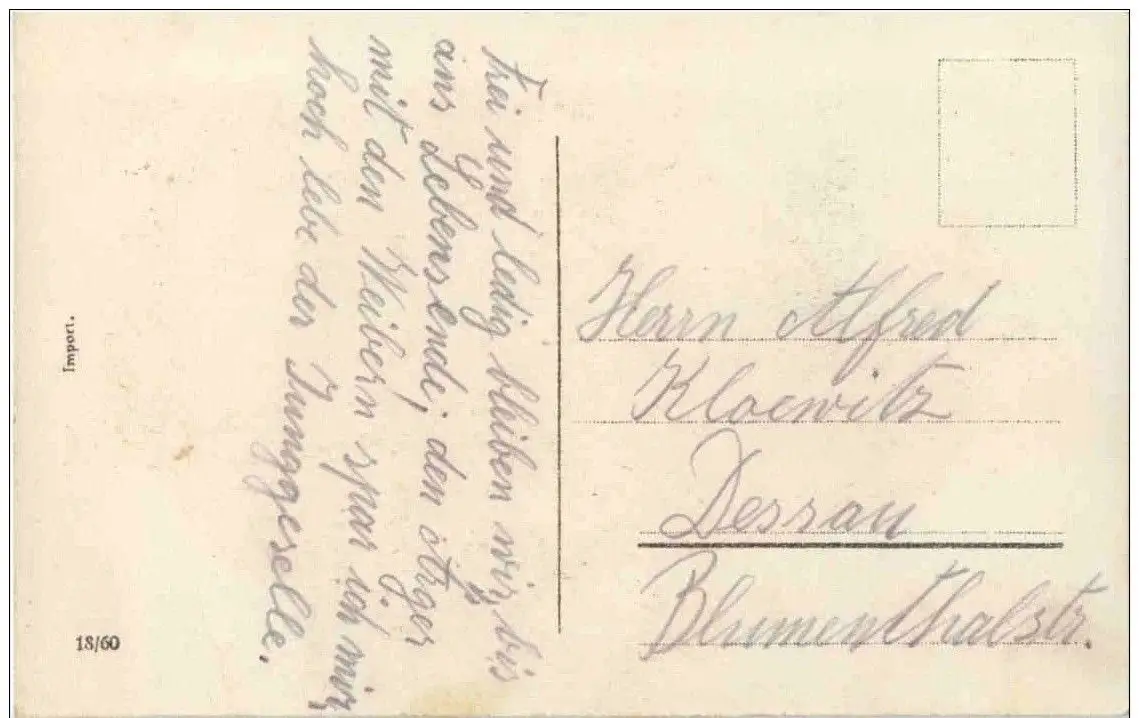 Frei und ledig bleiben wir, bis
ans Lebensende; den Ärger
mit den Weibern spar ich mir,
hoch lebe der Junggeselle.
Herrn Alfred
Kloewitz
Dessau
Blumenthalstr.
Import.
18/60